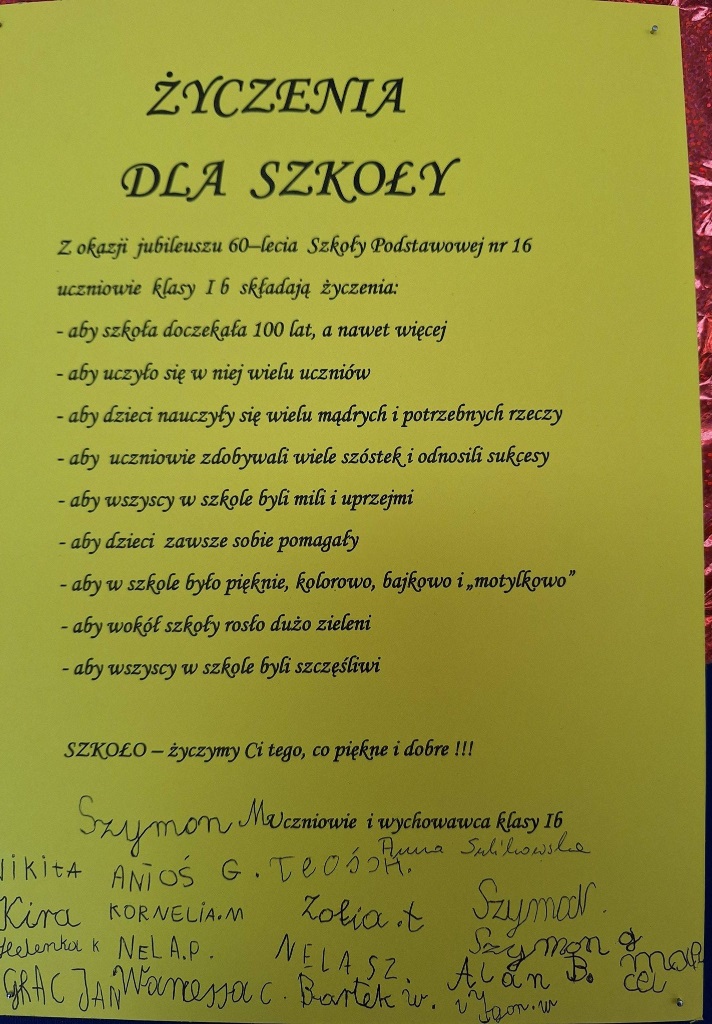 ŻYCZENIA
DLA SZKOŁY
Z okazji jubileuszu 60–lecia Szkoły Podstawowej nr 16
uczniowie klasy I b składają życzenia:
- aby szkoła doczekała 100 lat, a nawet więcej
- aby uczyło się w niej wielu uczniów
- aby dzieci nauczyły się wielu mądrych i potrzebnych rzeczy
- aby uczniowie zdobywali wiele szóstek i odnosili sukcesy
- aby wszyscy w szkole byli mili i uprzejmi
- aby dzieci zawsze sobie pomagały
- aby w szkole było pięknie, kolorowo, bajkowo i „motylkowo”
- aby wokół szkoły rosło dużo zieleni
- aby wszyscy w szkole byli szczęśliwi
SZKOŁO – życzymy Ci tego, co piękne i dobre !!!
Szymon M Uczniowie i wychowawca klasy Ib
Anna
Nikita ANTOŚ G.
Kira KORNELIA.M Zofia.t Szymon
Helenka k NELA.P. NELA SZ. Szymon g
JAN Wanessa C. Bartek w. Alan B. Marcel